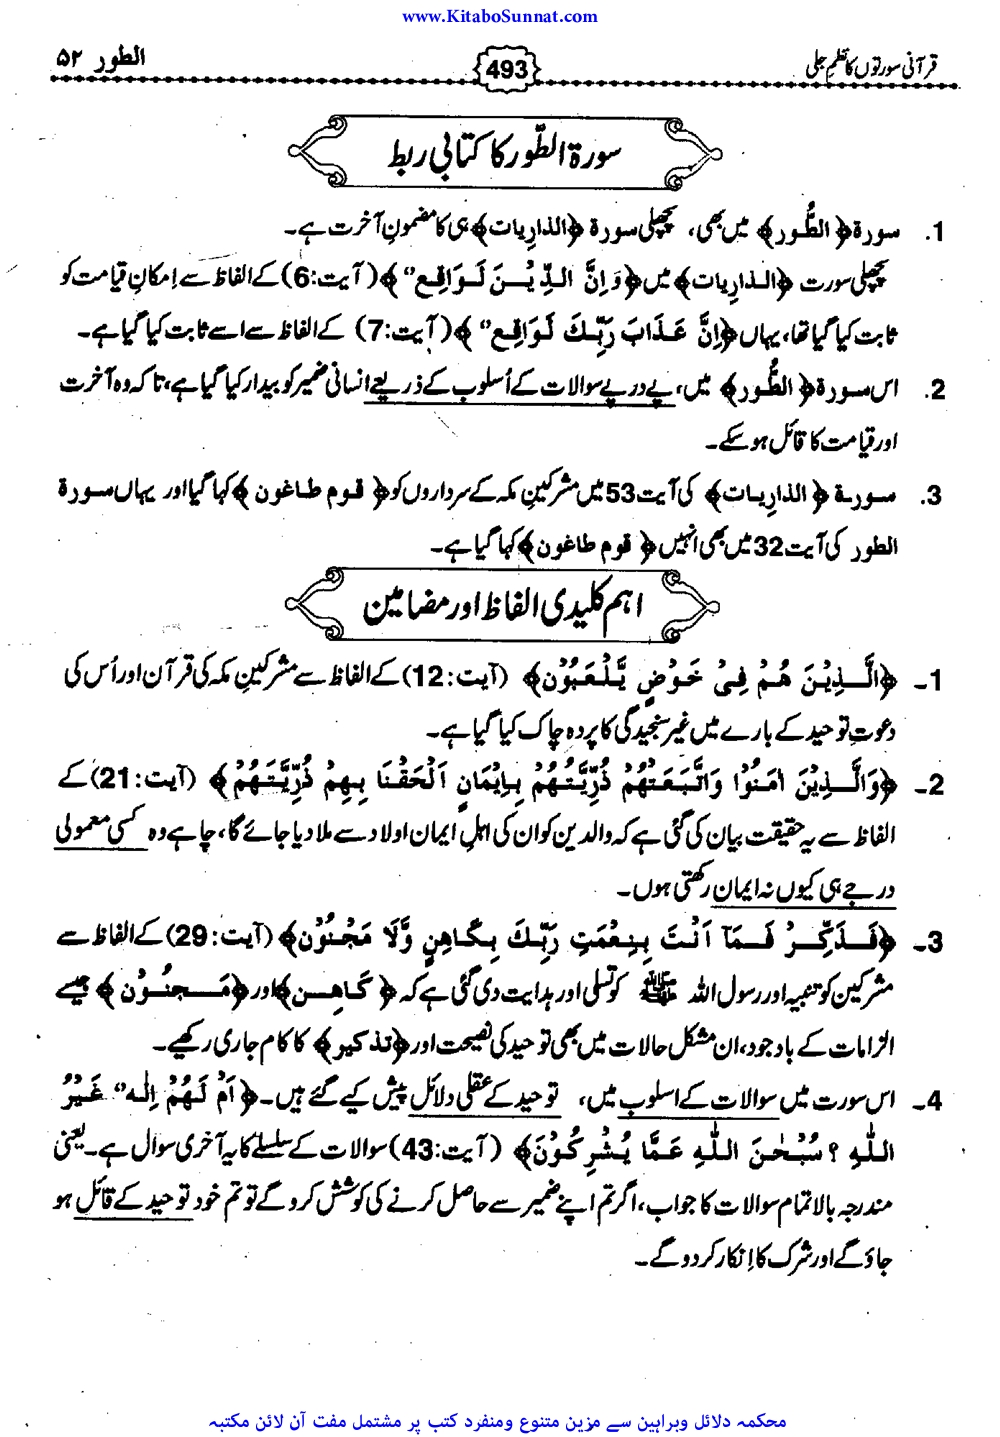 www.KitaboSunnat.com
قرآنی سورتوں کا نظمِ جلی 493 الطور ۵۲
سورۃ الطّور کا کتابی ربط
1. سورۃ ﴿ الطُّور﴾ میں بھی، پچھلی سورۃ ﴿الذارِیات﴾ ہی کا مضمونِ آخرت ہے۔
پچھلی سورت ﴿الذارِیات﴾ میں ﴿وَاِنَّ الدِّیْنَ لَوَاقِع ٌ﴾ (آیت:6) کے الفاظ سے اِمکانِ قیامت کو
ثابت کیا گیا تھا، یہاں ﴿اِنَّ عَذَابَ رَبِّكَ لَوَاقِع ٌ﴾ (آیت:7) کے الفاظ سے اسے ثابت کیا گیا ہے۔
2. اس سورۃ ﴿ الطُّور﴾ میں، پے در پے سوالات کے اُسلوب کے ذریعے انسانی ضمیر کو بیدار کیا گیا ہے، تاکہ وہ آخرت
اور قیامت کا قائل ہو سکے۔
3. سورۃ ﴿ الذارِیات﴾ کی آیت 53 میں مشرکینِ مکہ کے سرداروں کو ﴿ قوم طاغون ﴾ کہا گیا اور یہاں سورۃ
الطور کی آیت 32 میں بھی انہیں ﴿ قوم طاغون ﴾ کہا گیا ہے۔
اہم کلیدی الفاظ اور مضامین
1۔ ﴿الَّذِیْنَ هُمْ فِیْ خَوْضٍ یَّلْعَبُوْن﴾ (آیت:12) کے الفاظ سے مشرکینِ مکہ کی قرآن اور اُس کی
دعوتِ توحید کے بارے میں غیر سنجیدگی کا پردہ چاک کیا گیا ہے۔
2۔ ﴿وَالَّذِیْنَ اٰمَنُوْا وَاتَّبَعَتْهُمْ ذُرِّیَّتُهُمْ بِاِیْمَانٍ اَلْحَقْنَا بِهِمْ ذُرِّیَّتَهُمْ﴾ (آیت:21) کے
الفاظ سے یہ حقیقت بیان کی گئی ہے کہ والدین کو ان کی اہلِ ایمان اولاد سے ملا دیا جائے گا، چاہے وہ کسی معمولی
درجے ہی کیوں نہ ایمان رکھتی ہوں۔
3۔ ﴿فَذَكِّرْ فَمَآ اَنْتَ بِنِعْمَتِ رَبِّكَ بِكَاهِنٍ وَّلَا مَجْنُوْن﴾ (آیت:29) کے الفاظ سے
مشرکین کو تنبیہ اور رسول اللہ ﷺ کو تسلی اور ہدایت دی گئی ہے کہ ﴿ كَاهِن﴾ اور ﴿مَجْنُوْن ﴾ جیسے
الزامات کے باوجود، ان مشکل حالات میں بھی توحید کی نصیحت اور ﴿تذکیر﴾ کا کام جاری رکھیے۔
4۔ اس سورت میں سوالات کے اسلوب میں، توحید کے عقلی دلائل پیش کیے گئے ہیں۔ ﴿ اَمْ لَهُمْ اِلٰه ٌ غَیْرُ
اللّٰهِ ؟ سُبْحٰنَ اللّٰهِ عَمَّا یُشْرِكُوْنَ﴾ (آیت:43) سوالات کے سلسلے کا یہ آخری سوال ہے۔ یعنی
مندرجہ بالا تمام سوالات کا جواب، اگر تم اپنے ضمیر سے حاصل کرنے کی کوشش کرو گے تو تم خود توحید کے قائل ہو
جاؤ گے اور شرک کا اِنکار کر دو گے۔
محکمہ دلائل وبراہین سے مزین متنوع ومنفرد کتب پر مشتمل مفت آن لائن مکتبہ